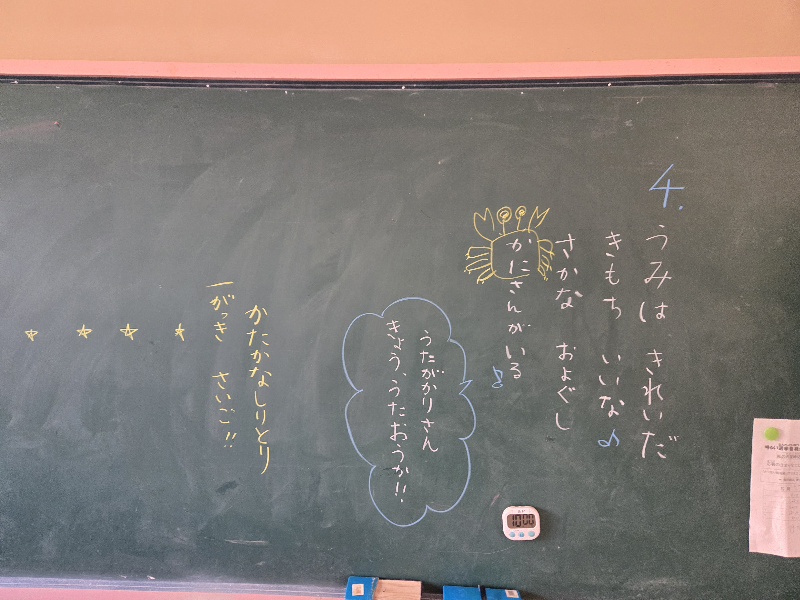 4.
うみは きれいだ
きもち いいな♪
さかな およぐし
かにさんがいる♪
うたがかりさん
きょう、うたおうか!!
かたかなしりとり
一がっき さいご!!
☆ ☆ ☆ ☆
10:00